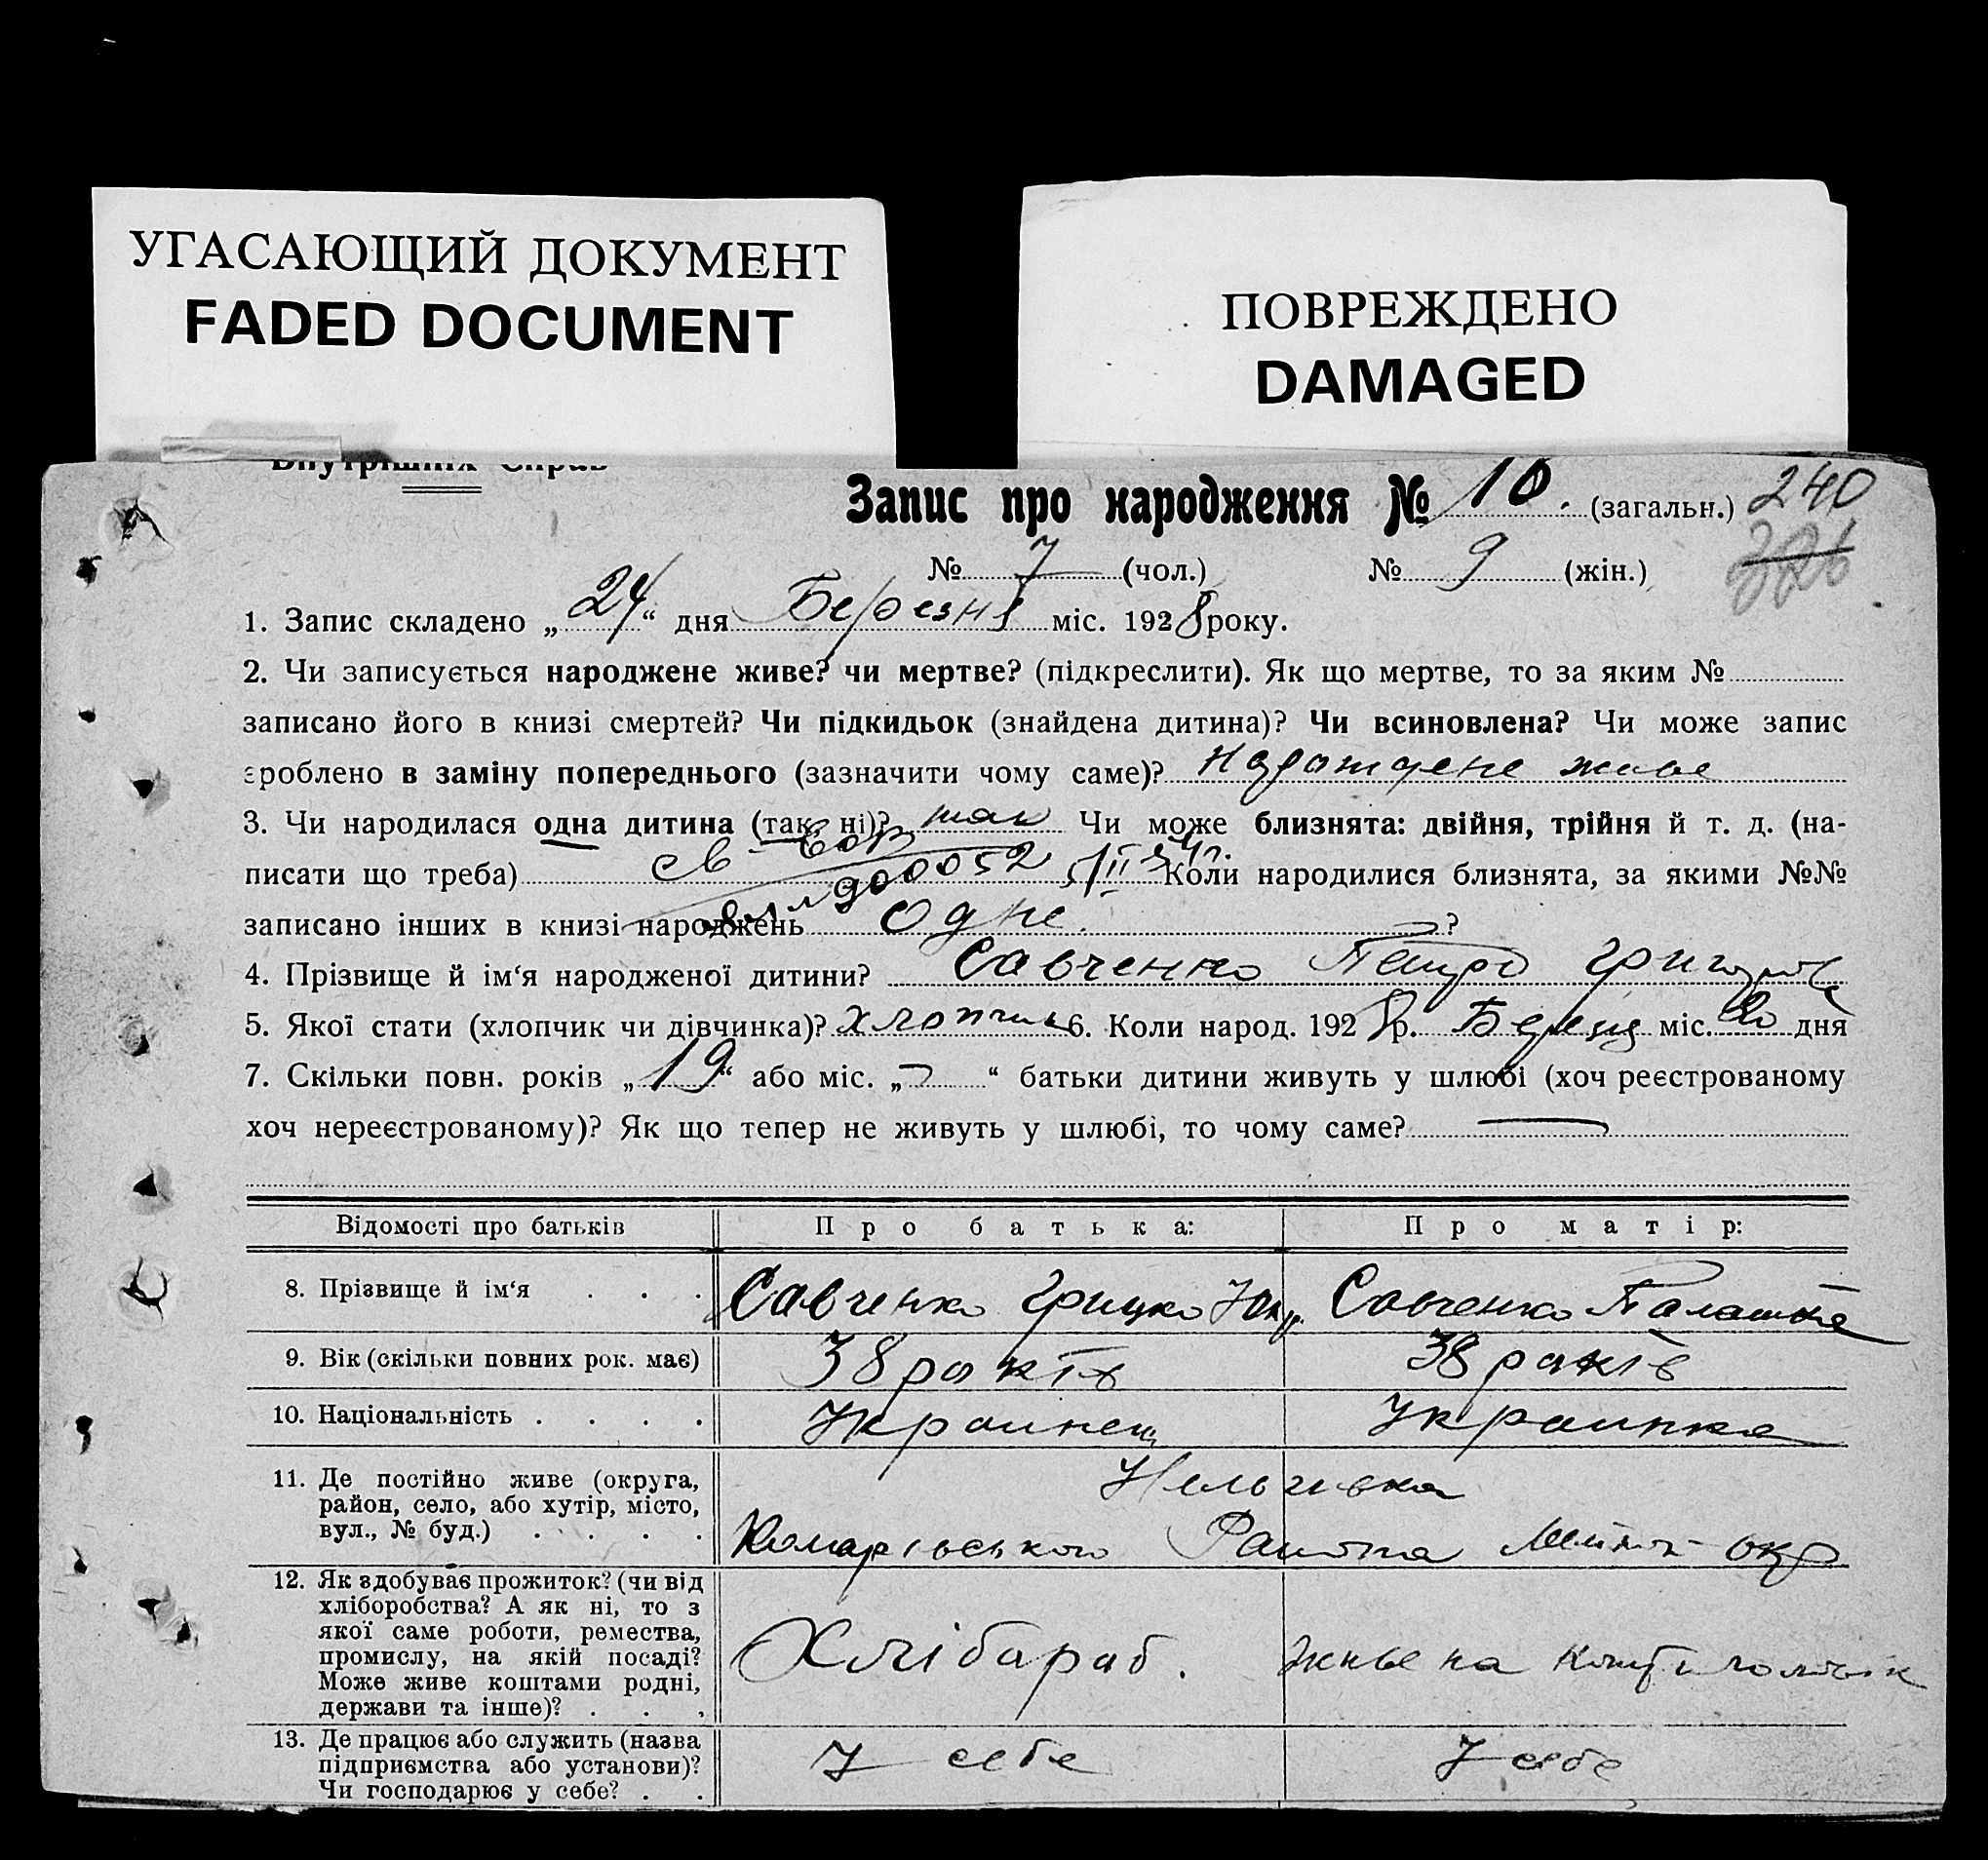 УГАСАЮЩИЙ ДОКУМЕНТ
FADED DOCUMENT
ПОВРЕЖДЕНО
DAMAGED
Внутрішніх Справ
Запис про народження № 10. (загальн.) 240
№ 7 (чол.) № 9 (жін.)
1. Запис складено „24“ дня Березня міс. 1928 року.
2. Чи записується народжене живе? чи мертве? (підкреслити). Як що мертве, то за яким №
записано його в книзі смертей? Чи підкидьок (знайдена дитина)? Чи всиновлена? Чи може запис
зроблено в заміну попереднього (зазначити чому саме)? Народжене живе
3. Чи народилася одна дитина (так, ні)? так Чи може близнята: двійня, трійня й т. д. (на-
писати що треба) Коли народилися близнята, за якими №№
записано інших в книзі народжень одне. ?
4. Прізвище й ім‘я народженої дитини? Савченко Петро
5. Якої стати (хлопчик чи дівчинка)? хлопчик 6. Коли народ. 1928 р. міс. 20 дня
7. Скільки повн. років „19“ або міс. „ “ батьки дитини живуть у шлюбі (хоч реєстрованому
хоч нереєстрованому)? Як що тепер не живуть у шлюбі, то чому саме?
Відомості про батьків Про батька: Про матір:
8. Прізвище й ім‘я . . . Савченко Грицко Савченко Палашка
9. Вік (скільки повних рок. має) 38 років 38 років
10. Національність . . . . Украинец Украинка
11. Де постійно живе (округа,
район, село, або хутір, місто,
вул., № буд.) . . . .
Комарівського окр
12. Як здобуває прожиток? (чи від
хліборобства? А як ні, то з
якої саме роботи, ремества,
промислу, на якій посаді?
Може живе коштами родні,
держави та інше)? . . .
Хлібараб. живе на
13. Де працює або служить (назва
підприємства або установи)?
Чи господарює у себе? . .
У себе У себе